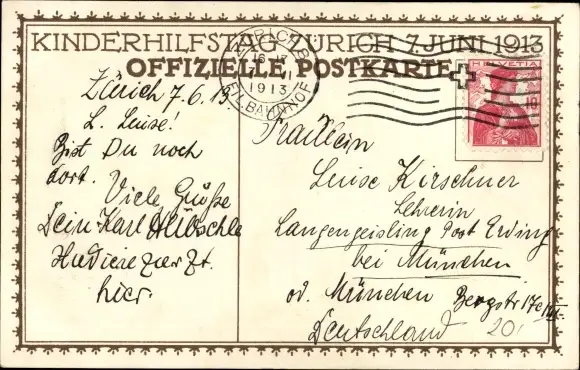 KINDERHILFSTAG ZÜRICH 7. JUNI 1913
OFFIZIELLE POSTKARTE
ZÜRICH 8
1913
BAHNHOF
HELVETIA
10
Zürich 7.6.13
L. Luise!
Bist Du noch
dort. Viele Grüße
Dein Karl Hübschle
Studiere zur Zt.
hier.
Fräulein
Luise Kirschner
Lehrerin
Langengeisling Post Erding
bei München
od. München Bergstr 17c
Deutschland
20.